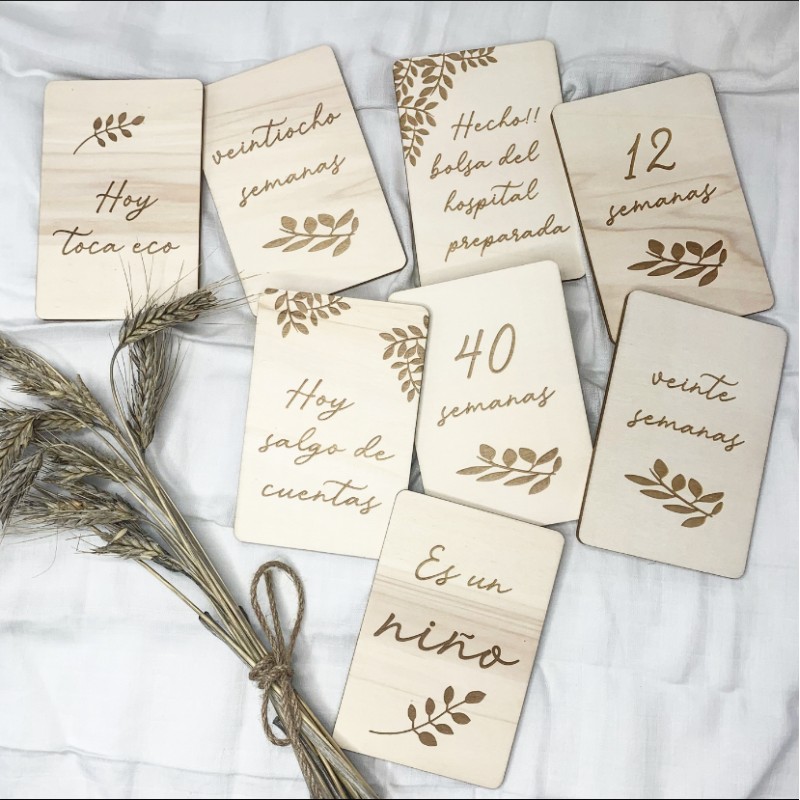 Hoy
toca eco
veintiocho
semanas
Hecho!!
bolsa del
hospital
preparada
12
semanas
Hoy
salgo de
cuentas
40
semanas
veinte
semanas
Es un
niño